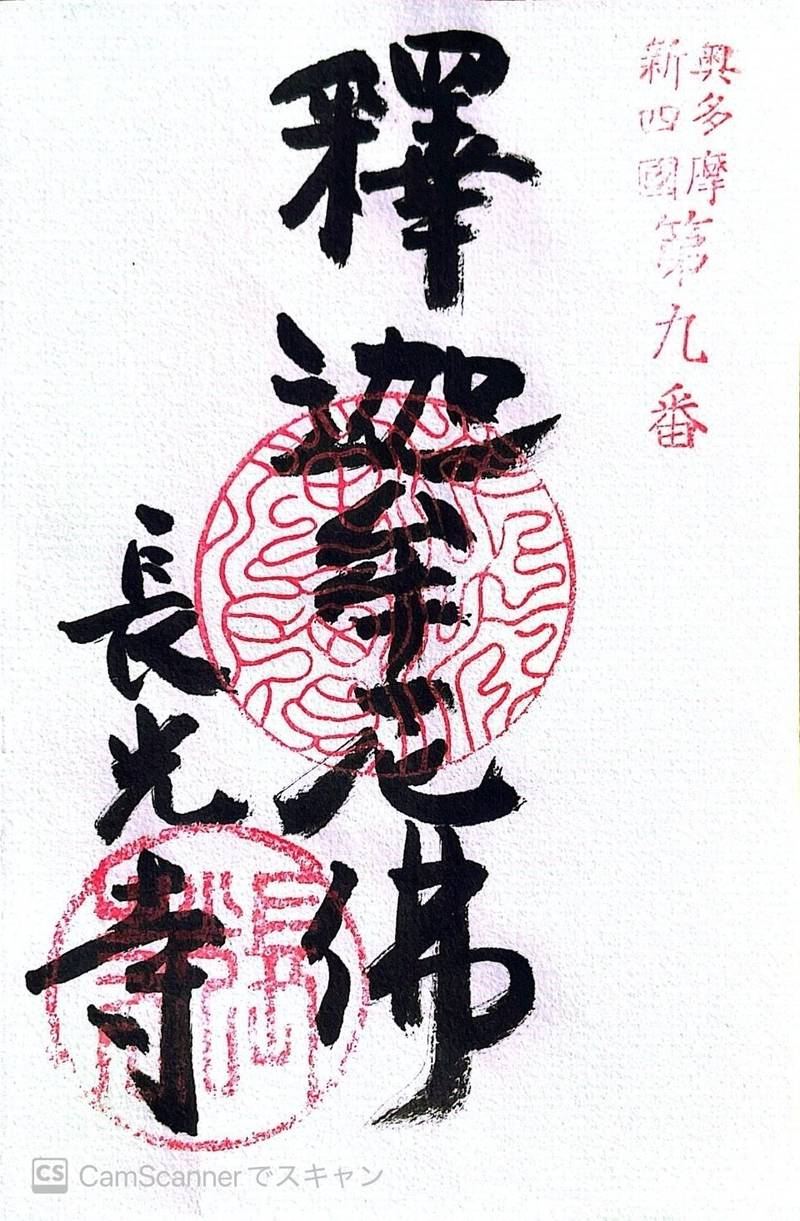 奥多摩
新四國
第九番
釋迦牟尼佛
長光寺
CS CamScannerでスキャン